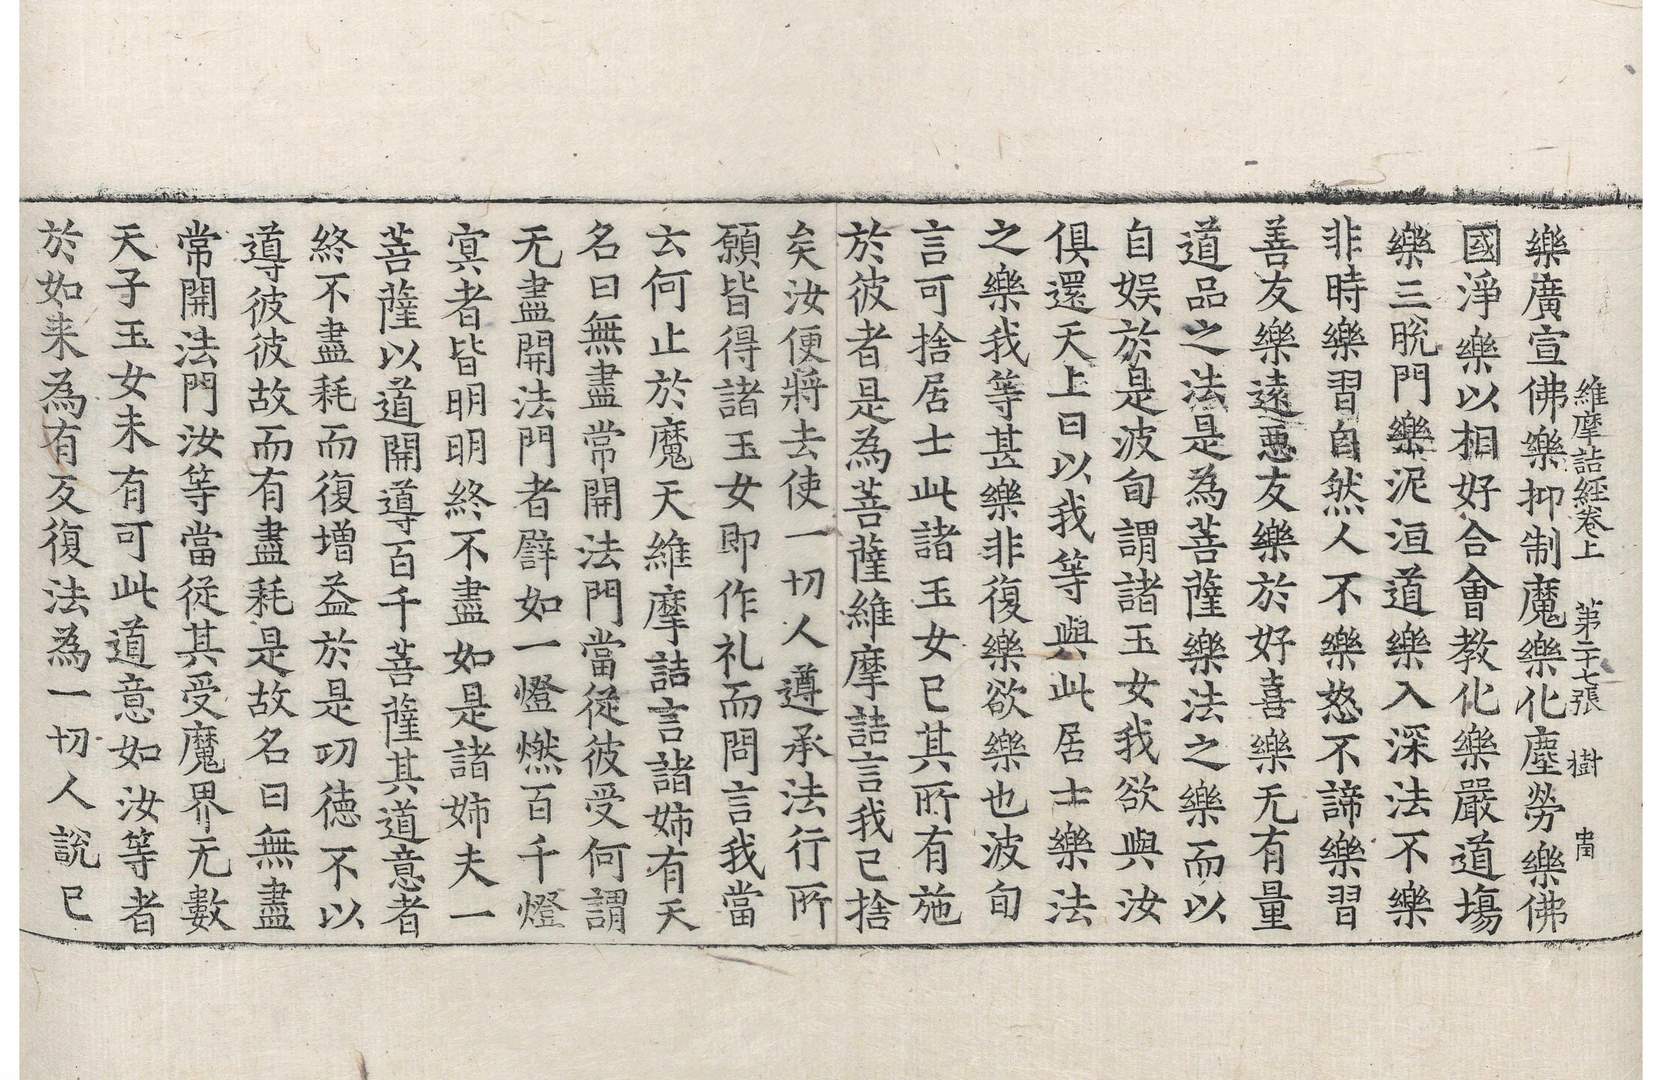 維摩詰經卷上 第二十七張 樹
樂廣宣佛樂抑制魔樂化塵勞樂佛
國淨樂以相好合會教化樂嚴道場
樂三脫門樂泥洹道樂入深法不樂
非時樂習自然人不樂怒不諦樂習
善友樂遠惡友樂於好喜樂无有量
道品之法是為菩薩樂法之樂而以
自娛於是波旬謂諸玉女我欲與汝
俱還天上曰以我等與此居士樂法
之樂我等甚樂非復樂欲樂也波旬
言可捨居士此諸玉女已其所有施
於彼者是為菩薩維摩詰言我已捨
矣汝便將去使一切人遵承法行所
願皆得諸玉女即作礼而問言我當
云何止於魔天維摩詰言諸姊有天
名曰無盡常開法門當從彼受何謂
无盡開法門者譬如一燈燃百千燈
冥者皆明明終不盡如是諸姊夫一
菩薩以道開導百千菩薩其道意者
終不盡耗而復增益於是功德不以
導彼彼故而有盡耗是故名曰無盡
常開法門汝等當從其受魔界无數
天子玉女未有可此道意如汝等者
於如来為有反復法為一切人說已